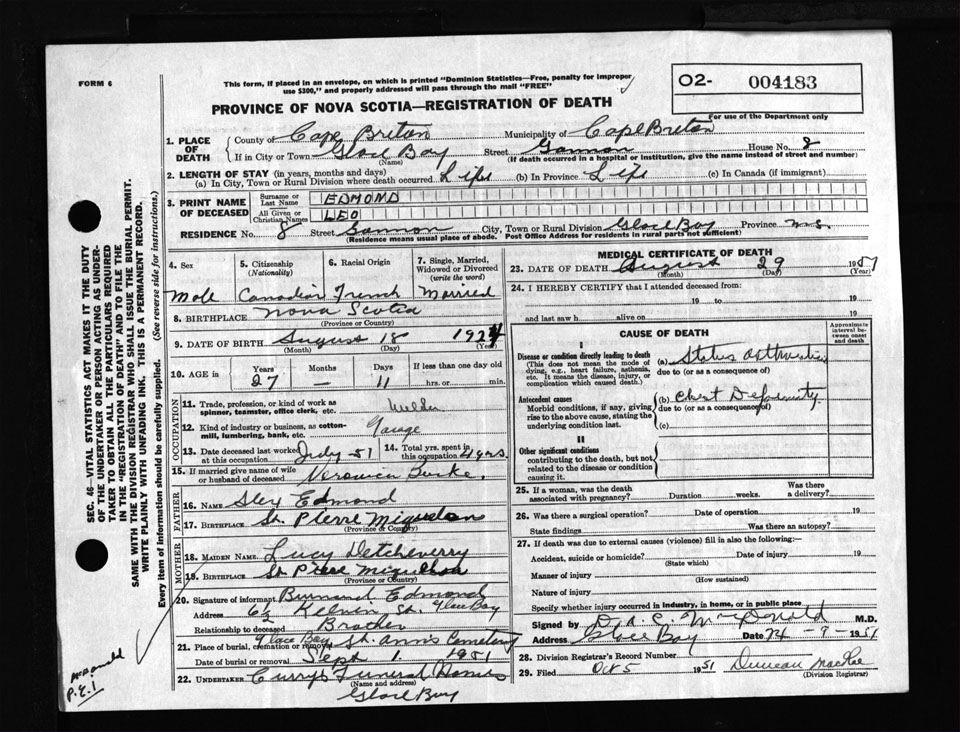 FORM 6
This form, if placed in an envelope, on which is printed "Dominion Statistics—Free, penalty for improper
use $300," and properly addressed will pass through the mail "FREE"
O2- 004183
For use of the Department only
PROVINCE OF NOVA SCOTIA—REGISTRATION OF DEATH
1. PLACE OF DEATH
County of Cape Breton Municipality of Cape Breton
If in City or Town Glace Bay Street Gannon House No. 8
(Name) (If death occurred in a hospital or institution, give the name instead of street and number)
2. LENGTH OF STAY (in years, months and days)
(a) In City, Town or Rural Division where death occurred Life (b) In Province Life (c) In Canada (if immigrant)
3. PRINT NAME OF DECEASED
Surname or Last Name EDMOND
All Given or Christian Names LEO
RESIDENCE No. 8 Street Gannon City, Town or Rural Division Glace Bay Province N.S.
(Residence means usual place of abode. Post Office Address for residents in rural parts not sufficient)
4. Sex 5. Citizenship (Nationality) 6. Racial Origin 7. Single, Married, Widowed or Divorced (write the word)
Male Canadian French Married
8. BIRTHPLACE Nova Scotia
(Province or Country)
9. DATE OF BIRTH August 18 1924
(Month) (Day) (Year)
10. AGE in Years Months Days If less than one day old
27 — 11 hrs. or min.
OCCUPATION
11. Trade, profession, or kind of work as spinner, teamster, office clerk, etc. Welder
12. Kind of industry or business, as cotton-mill, lumbering, bank, etc. Garage
13. Date deceased last worked at this occupation July 51 14. Total yrs. spent in this occupation 4 yrs.
15. If married give name of wife or husband of deceased Veronica Burke.
FATHER
16. NAME Sley Edmond
17. BIRTHPLACE St. Pierre Miquelon
(Province or Country)
MOTHER
18. MAIDEN NAME Lucy Detcheverry
19. BIRTHPLACE St Pierre Miquelon
(Province or Country)
20. Signature of informant Burnand Edmond
Address 6½ Kelvin St. Glace Bay
Relationship to deceased Brother
21. Place of burial, cremation or removal Glace Bay St. Ann's Cemetery
Date of burial or removal Sept 1 1951
22. UNDERTAKER Curry's Funeral Home
(Name and address)
Glace Bay
MEDICAL CERTIFICATE OF DEATH
23. DATE OF DEATH August 29 1951
(Month) (Day) (Year)
24. I HEREBY CERTIFY that I attended deceased from:
19 to 19
and last saw h alive on 19
CAUSE OF DEATH
Approximate interval between onset and death
I
Disease or condition directly leading to death
(This does not mean the mode of dying, e.g., heart failure, asthenia, etc. It means the disease, injury, or complication which caused death.)
(a) Status asthmaticus
due to (or as a consequence of)
Antecedent causes
Morbid conditions, if any, giving rise to the above cause, stating the underlying condition last.
(b) Chest Deformity
due to (or as a consequence of)
(c)
II
Other significant conditions
contributing to the death, but not related to the disease or condition causing it.
25. If a woman, was the death associated with pregnancy? Duration weeks. Was there a delivery?
26. Was there a surgical operation? Date of operation 19
State findings Was there an autopsy?
27. If death was due to external causes (violence) fill in also the following:—
Accident, suicide or homicide? Date of injury 19
(State which)
Manner of injury
(How sustained)
Nature of injury
Specify whether injury occurred in industry, in home, or in public place
Signed by D. A. S. McDonald M.D.
Address Glace Bay Date 24 - 9 - 1951
28. Division Registrar's Record Number
29. Filed Oct 5 1951 Duncan MacRae
(Division Registrar)
SEC. 46—VITAL STATISTICS ACT MAKES IT THE DUTY
OF THE UNDERTAKER OR PERSON ACTING AS UNDER-
TAKER TO OBTAIN ALL THE PARTICULARS REQUIRED
IN THE "REGISTRATION OF DEATH" AND TO FILE THE
SAME WITH THE DIVISION REGISTRAR WHO SHALL ISSUE THE BURIAL PERMIT.
WRITE PLAINLY WITH UNFADING INK. THIS IS A PERMANENT RECORD.
Every item of information should be carefully supplied. (See reverse side for instructions.)
McDonald
P.E.I